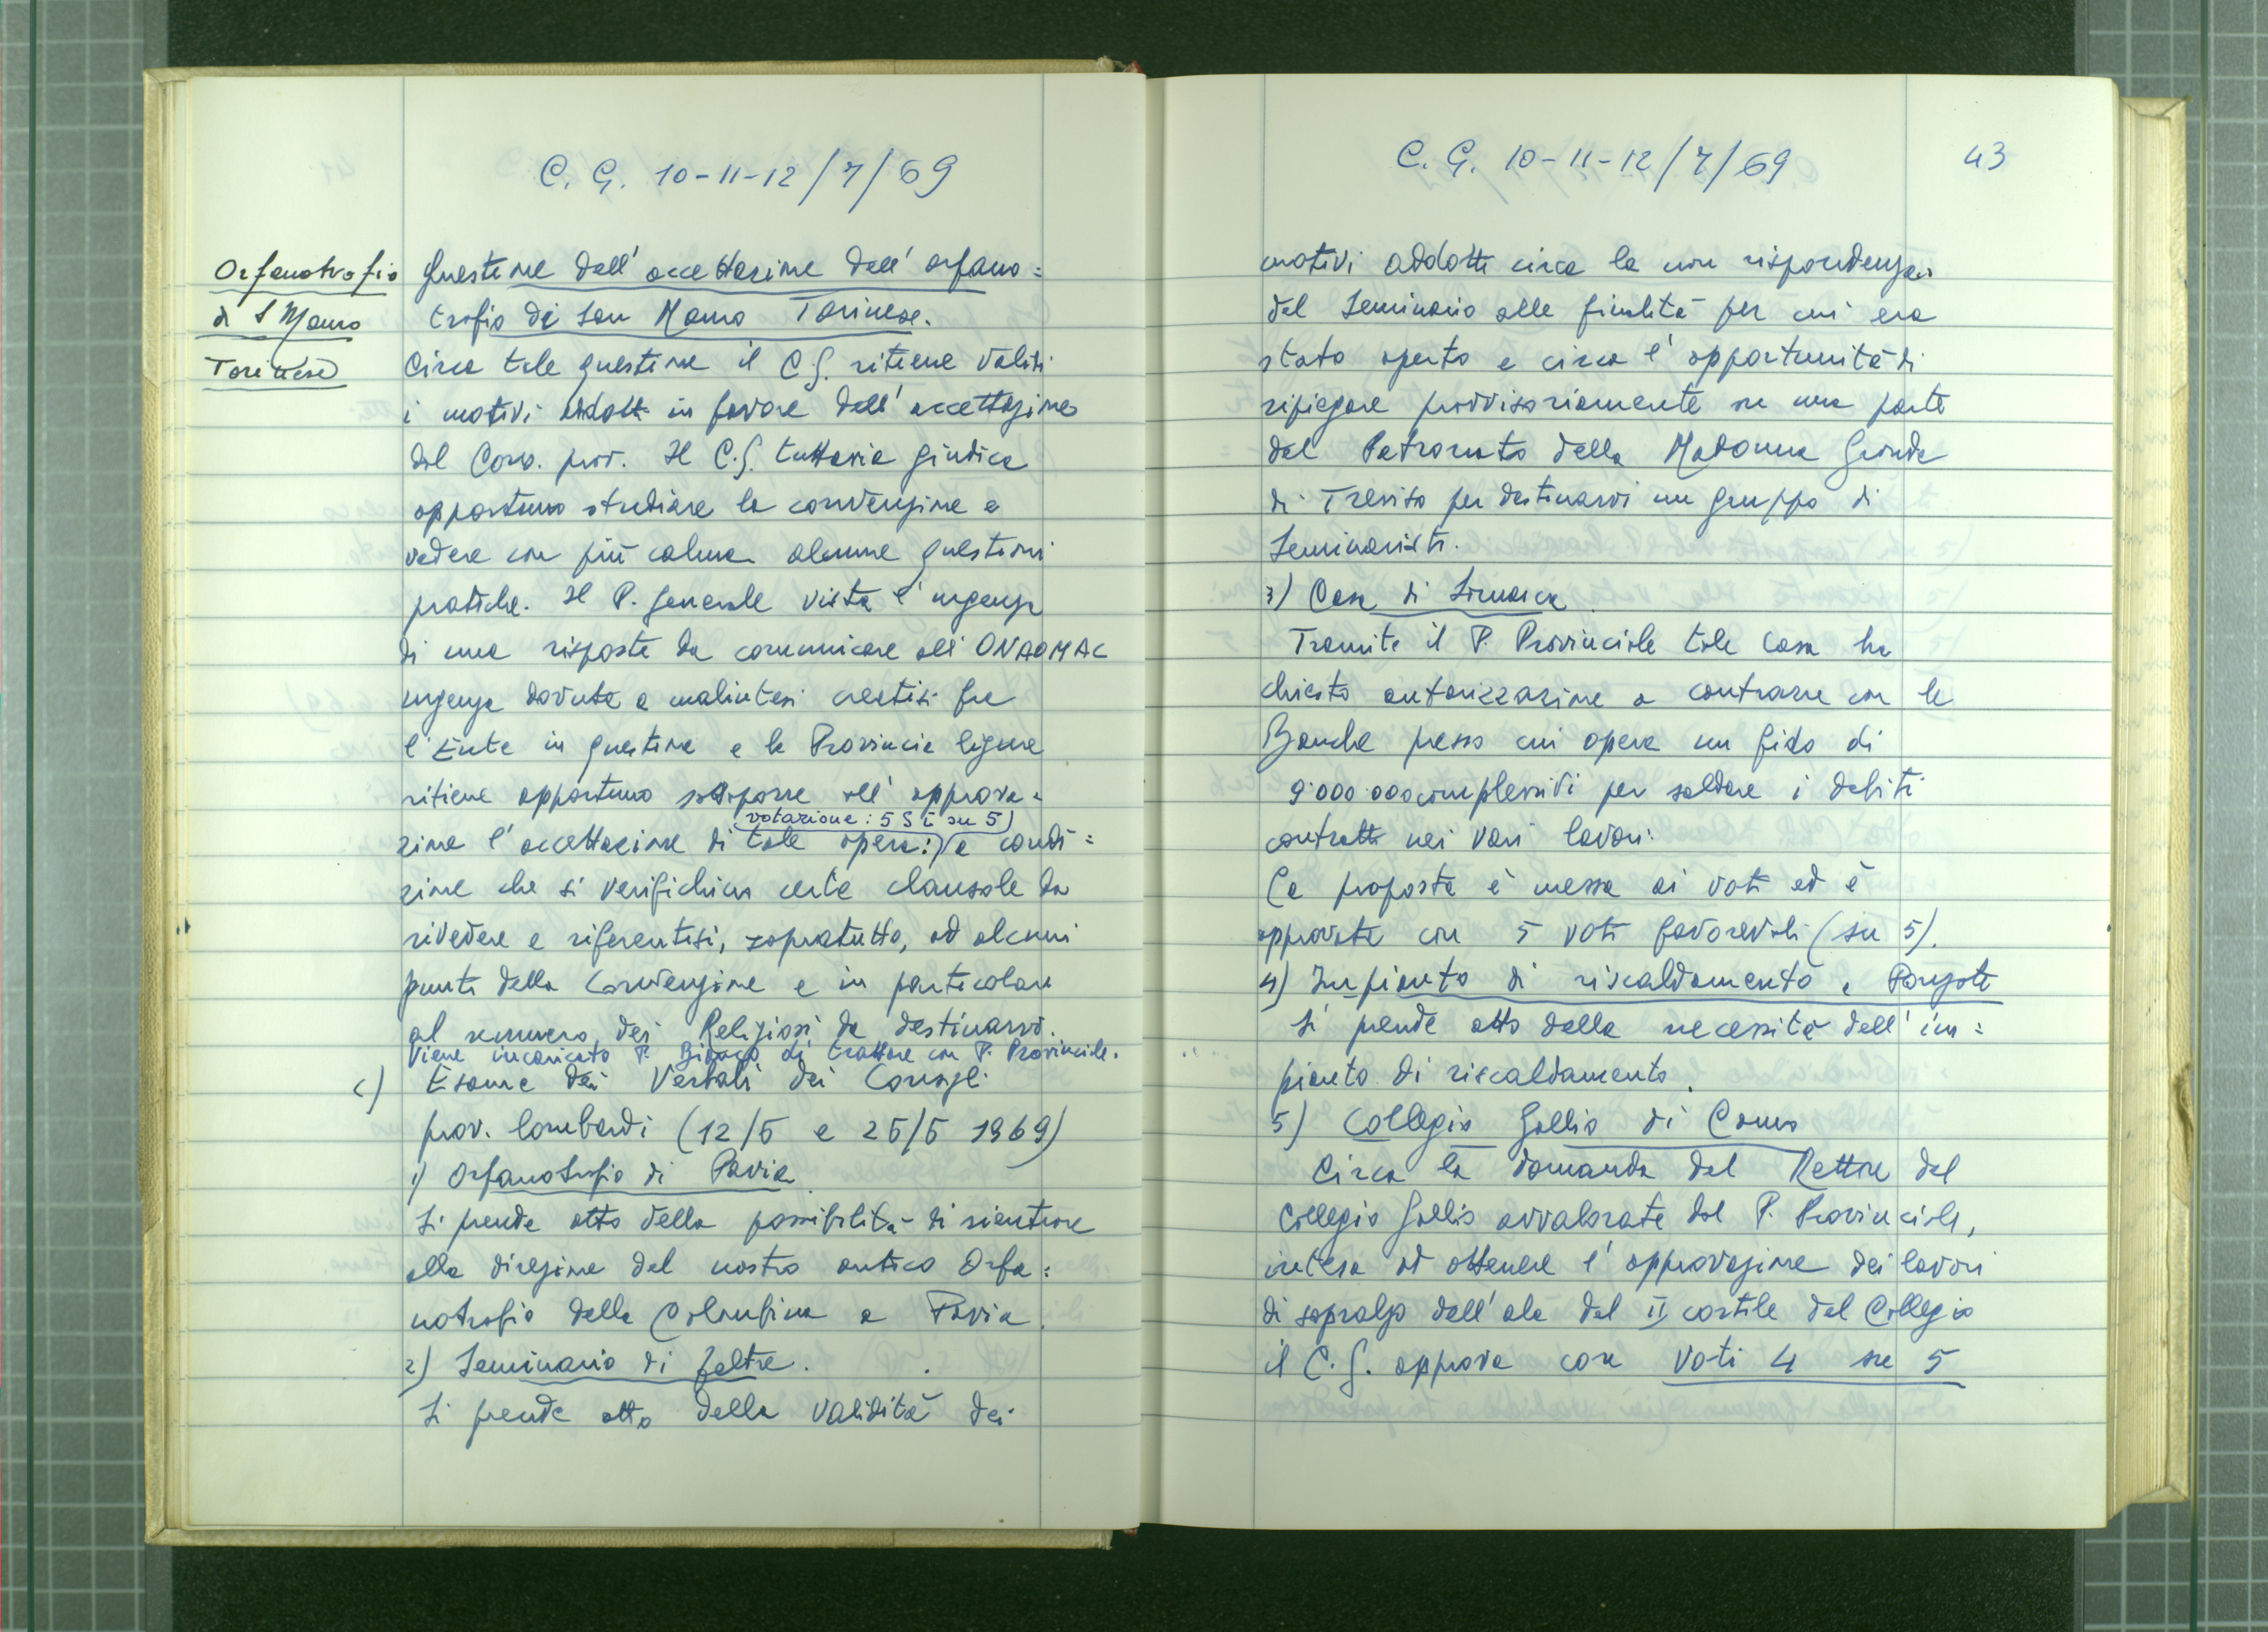 C. G. 10-11-12/7/69
Orfanotrofio
di S Mauro
Torinese
Questione dell' accettazione dell' orfano=
trofio di San Mauro Torinese.
Circa tale questione il C.G. ritiene validi
i motivi addotti in favore dell' accettazione
dal Cons. prov. Il C.G. tuttavia giudica
opportuno studiare la convenzione e
vedere con più calma alcune questioni
pratiche. Il P. Generale vista l' urgenza
di una risposta da comunicare all' ONAOMAC
urgenza dovuta a malintesi creatisi fra
l' Ente in questione e la Provincia ligure
ritiene opportuno sottoporre all' approva=
(votazione: 5 SÌ su 5)
zione l' accettazione di tale opera: a condi=
zione che si verifichino certe clausole da
rivedere e riferentisi, sopratutto, ad alcuni
punti della Convenzione e in particolare
al numero dei Religiosi da destinarvi.
Viene incaricato P. di trattare con P. Provinciale.
c) Esame dei Verbali dei Consigli
prov. lombardi (12/5 e 25/5 1969)
1) Orfanotrofio di Pavia
Si prende atto della possibilità di rientrare
alla direzione del nostro antico Orfa=
notrofio della Colombina a Pavia.
2) Seminario di Feltre.
Si prende atto della validità dei
C. G. 10-11-12/7/69
43
motivi addotti circa la non rispondenza
del Seminario alle finalità per cui era
stato aperto e circa l' opportunità di
ripiegare provvisoriamente su una parte
del Patronato della Madonna Grande
di Treviso per destinarvi un gruppo di
Seminaristi.
3) Casa di
Tramite il P. Provinciale tale Casa ha
chiesto autorizzazione a contrarre con le
Banche presso cui opera un fido di
9.000.000 complessivi per saldare i debiti
contratti nei vari lavori.
La proposta è messa ai voti ed è
approvata con 5 voti favorevoli (su 5).
4) Impianto di riscaldamento a Ponzate
Si prende atto della necessità dell' im=
pianto di riscaldamento.
5) Collegio Gallio di Como
Circa la domanda del Rettore del
Collegio Gallio avvalorata dal P. Provinciale,
intesa ad ottenere l' approvazione dei lavori
di sopralzo dell' ala del II cortile del Collegio
il C.G. approva con voti 4 su 5